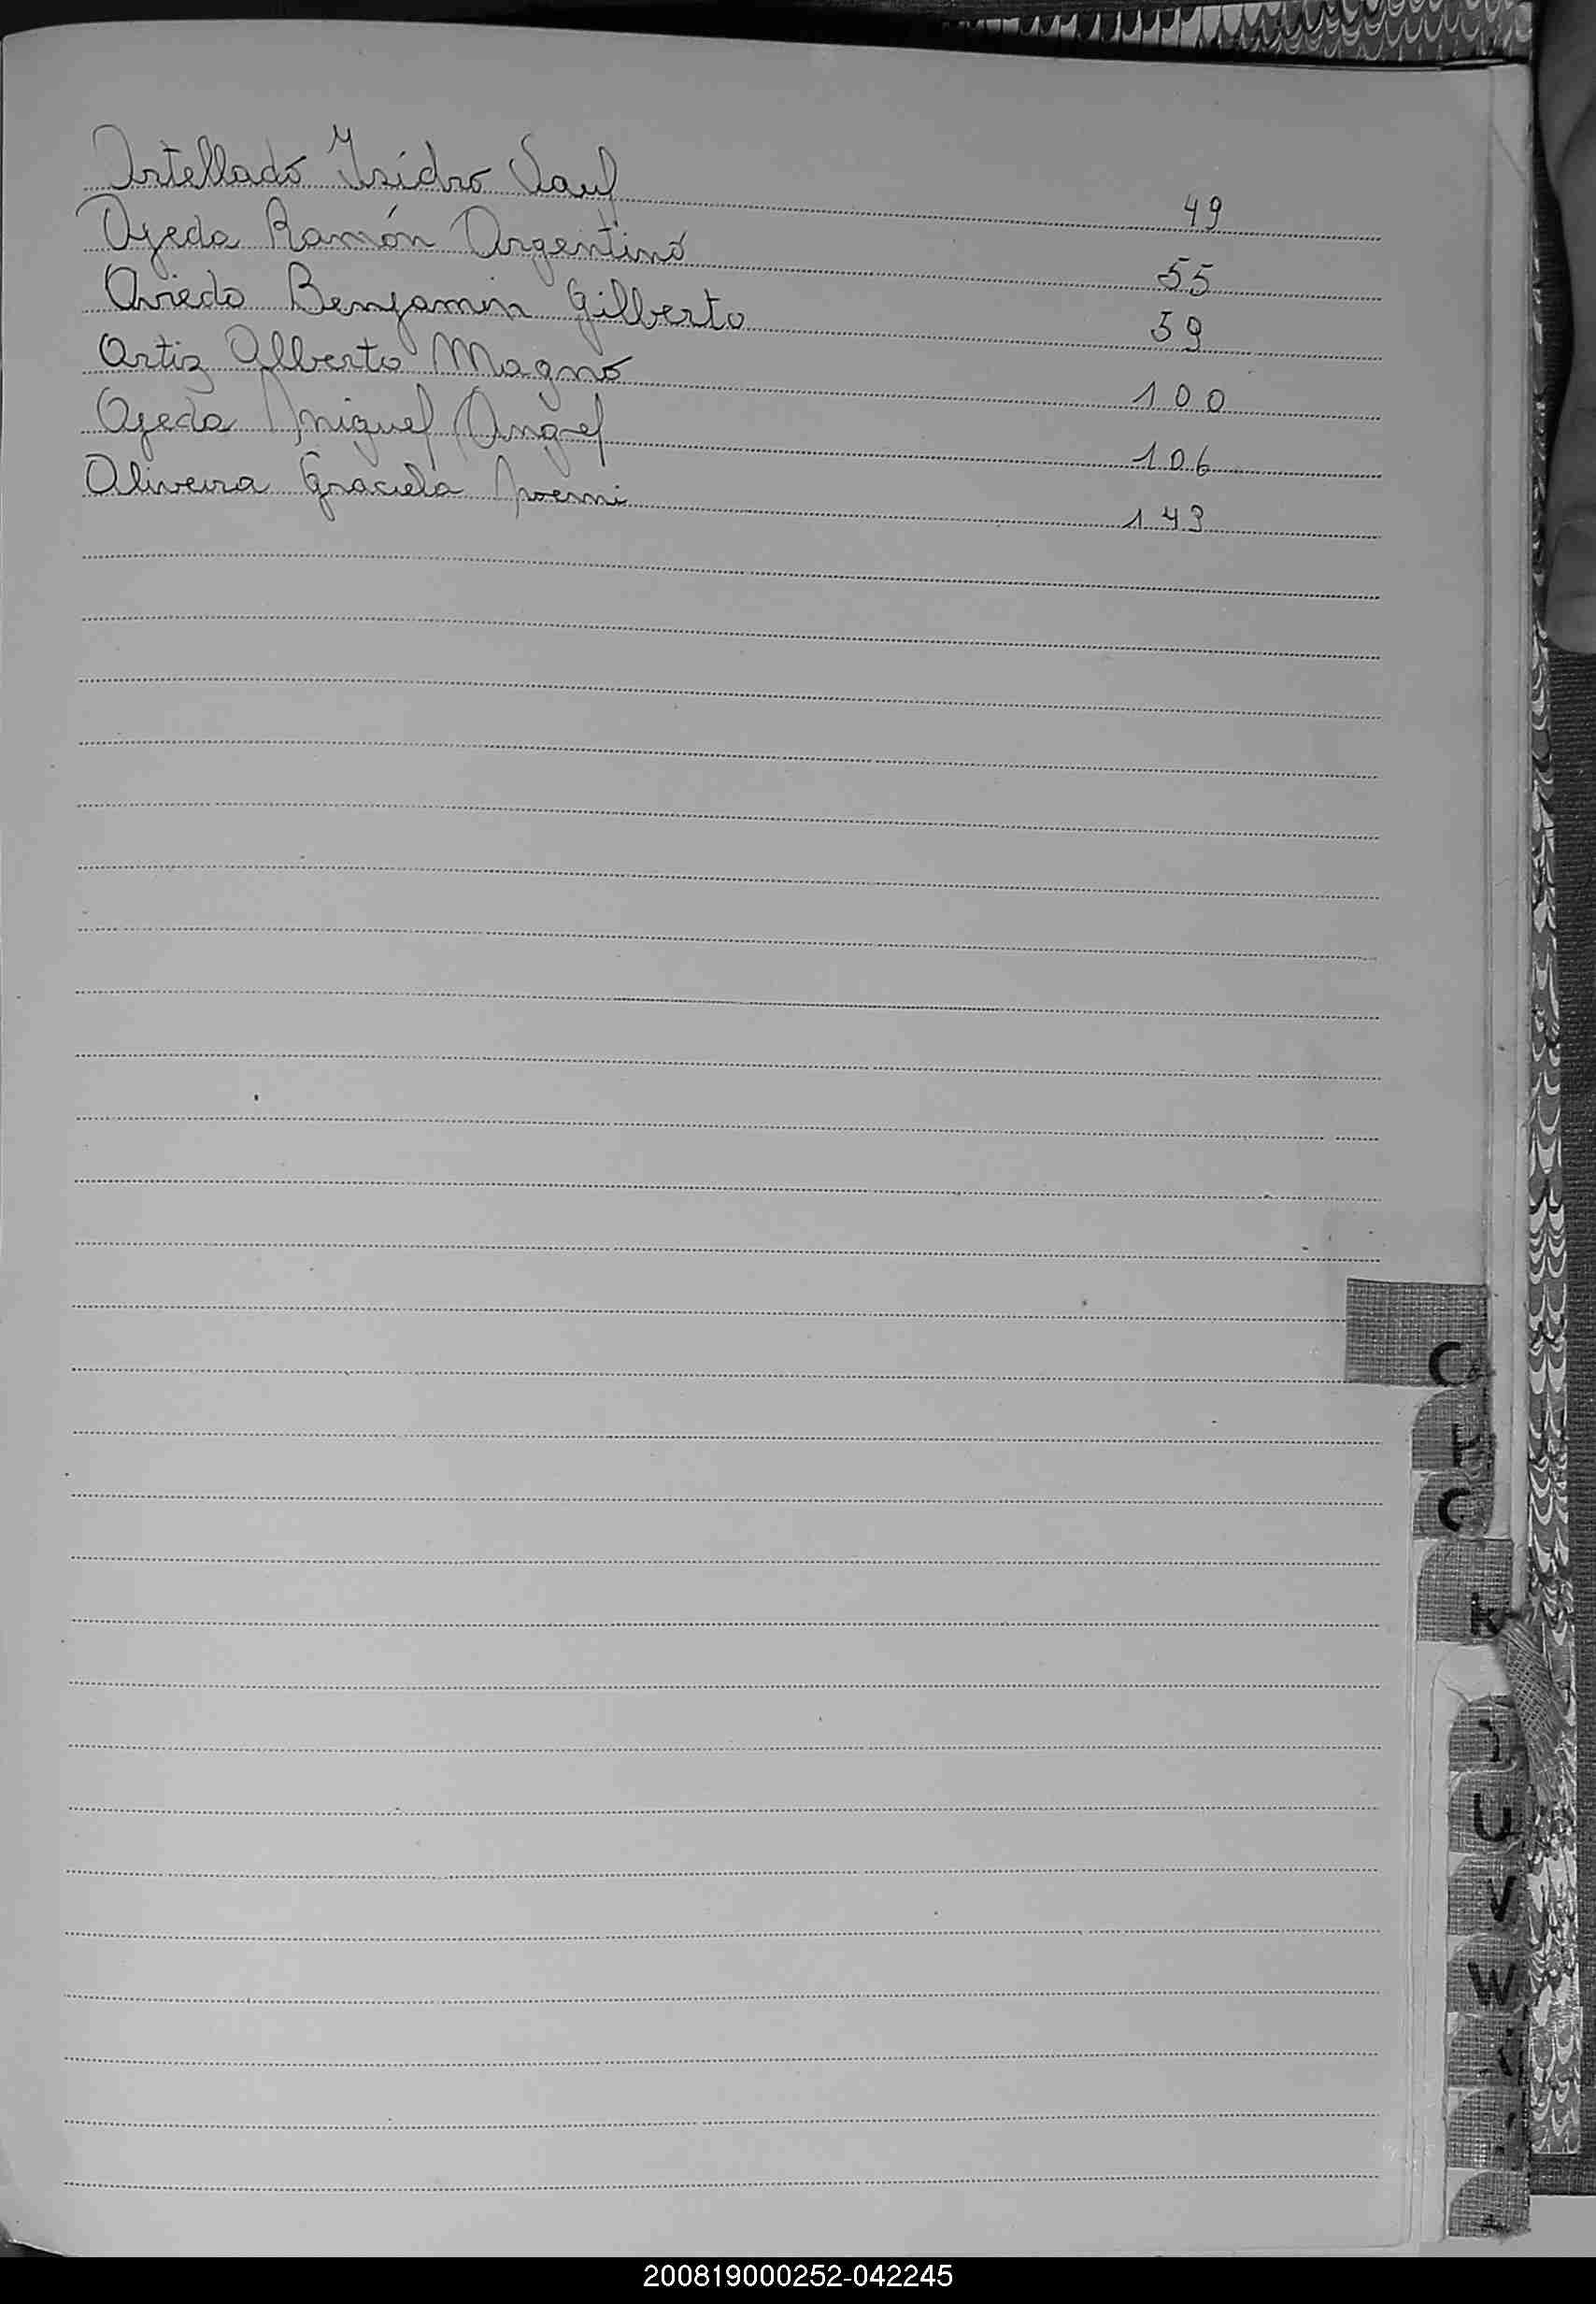 Ortellado Isidro Saul 49
Ojeda Ramón Argentino 55
Oviedo Benjamin Gilberto 59
Ortiz Alberto Magno 100
Ojeda Miguel Angel 106
Oliveira Graciela Noemi 143
C
C
K
U
V
W
200819000252-042245